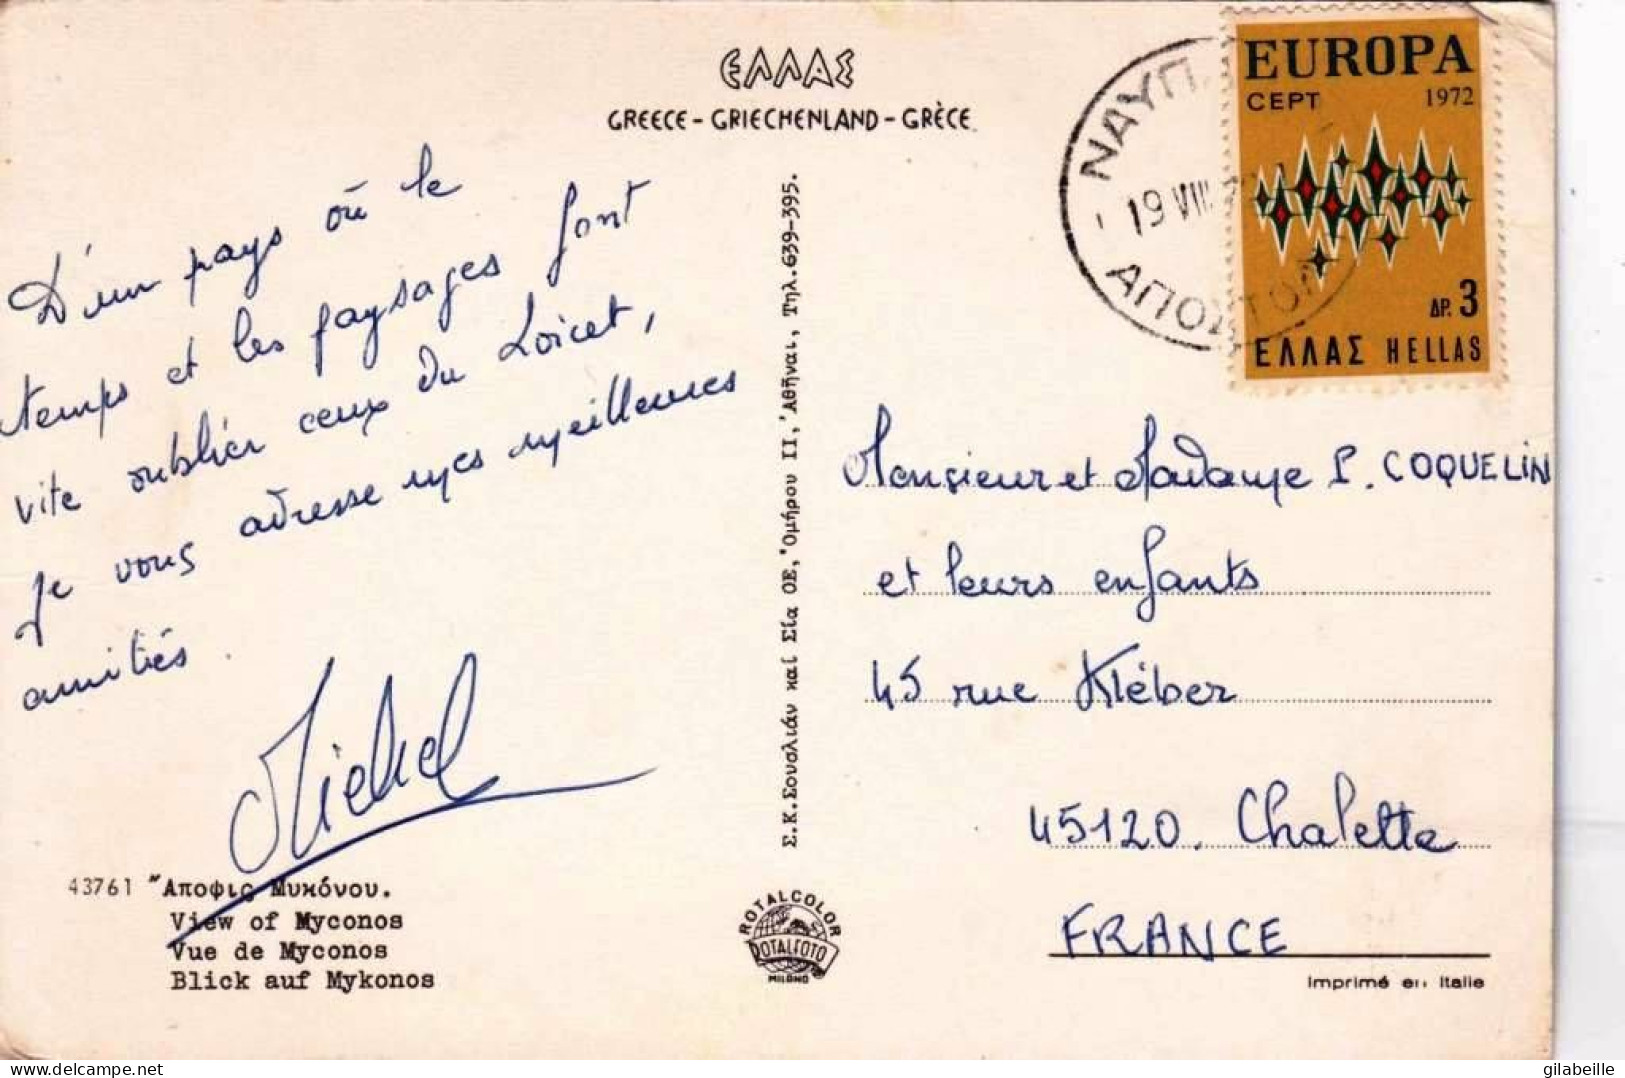 ΕΛΛΑΣ
GREECE - GRIECHENLAND - GRÈCE
D'un pays où le
temps et les paysages font
vite oublier ceux du Loiret,
je vous adresse mes meilleures
amitiés.
Michel
43761 Ἄποψις Μυκόνου.
View of Myconos
Vue de Myconos
Blick auf Mykonos
Σ.Κ.Σουσλιάν καί Σία ΟΕ, Ὁμήρου 11, Ἀθῆναι, Τηλ.639-395.
ROTALCOLOR
ROTALFOTO
MILANO
ΝΑΥΠ
19 VIII
ΑΠΟΣΤΟΛ
EUROPA
CEPT 1972
ΔΡ. 3
ΕΛΛΑΣ HELLAS
Monsieur et Madame P. COQUELIN
et leurs enfants
45 rue Kléber
45120. Chalette
FRANCE
Imprimé en Italie
gilabeille